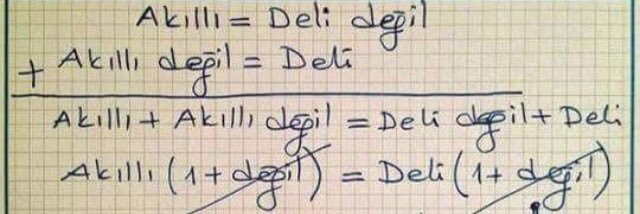 Akıllı = Deli değil
+ Akıllı değil = Deli
Akıllı + Akıllı değil = Deli değil + Deli
Akıllı (1 + değil) = Deli (1 + değil)